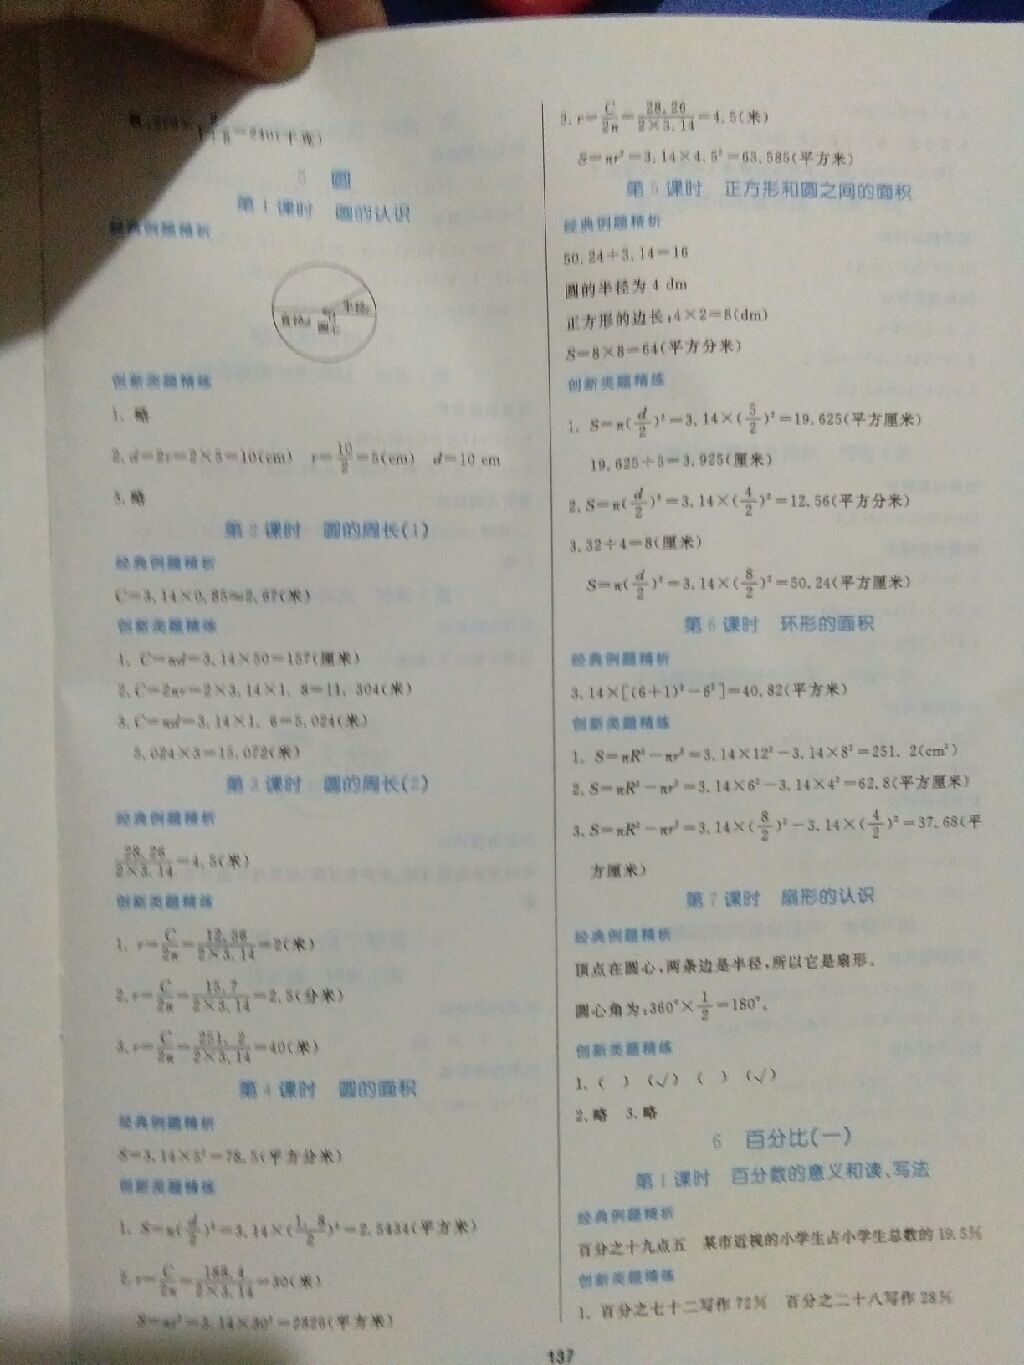 =240(千克)
5 圆
第1课时 圆的认识
经典例题精析
半径r
直径d 圆心
创新类题精练
1. 略
2. d=2r=2×5=10(cm) r=10/2=5(cm) d=10 cm
3. 略
第2课时 圆的周长(1)
经典例题精析
C=3.14×0.85≈2.67(米)
创新类题精练
1. C=πd=3.14×50=157(厘米)
2. C=2πr=2×3.14×1.8=11.304(米)
3. C=πd=3.14×1.6=5.024(米)
5.024×3=15.072(米)
第3课时 圆的周长(2)
经典例题精析
28.26/2×3.14=4.5(米)
创新类题精练
1. r=C/2π=12.56/2×3.14=2(米)
2. r=C/2π=15.7/2×3.14=2.5(分米)
3. r=C/2π=251.2/2×3.14=40(米)
第4课时 圆的面积
经典例题精析
S=3.14×5²=78.5(平方分米)
创新类题精练
1. S=π(d/2)²=3.14×(1.8/2)²=2.5434(平方米)
2. r=C/2π=188.4/2×3.14=30(米)
S=πr²=3.14×30²=2826(平方米)
3. r=C/2π=28.26/2×3.14=4.5(米)
S=πr²=3.14×4.5²=63.585(平方米)
第5课时 正方形和圆之间的面积
经典例题精析
50.24÷3.14=16
圆的半径为4 dm
正方形的边长:4×2=8(dm)
S=8×8=64(平方分米)
创新类题精练
1. S=π(d/2)²=3.14×(5/2)²=19.625(平方厘米)
19.625÷5=3.925(厘米)
2. S=π(d/2)²=3.14×(4/2)²=12.56(平方分米)
3. 32÷4=8(厘米)
S=π(d/2)²=3.14×(8/2)²=50.24(平方厘米)
第6课时 环形的面积
经典例题精析
3.14×[(6+1)²-6²]=40.82(平方米)
创新类题精练
1. S=πR²-πr²=3.14×12²-3.14×8²=251.2(cm²)
2. S=πR²-πr²=3.14×6²-3.14×4²=62.8(平方厘米)
3. S=πR²-πr²=3.14×(8/2)²-3.14×(4/2)²=37.68(平
方厘米)
第7课时 扇形的认识
经典例题精析
顶点在圆心,两条边是半径,所以它是扇形。
圆心角为:360°×1/2=180°。
创新类题精练
1. ( ) (√) ( ) (√)
2. 略 3. 略
6 百分比(一)
第1课时 百分数的意义和读、写法
经典例题精析
百分之十九点五 某市近视的小学生占小学生总数的19.5%
创新类题精练
1. 百分之七十二写作72% 百分之二十八写作28%
137